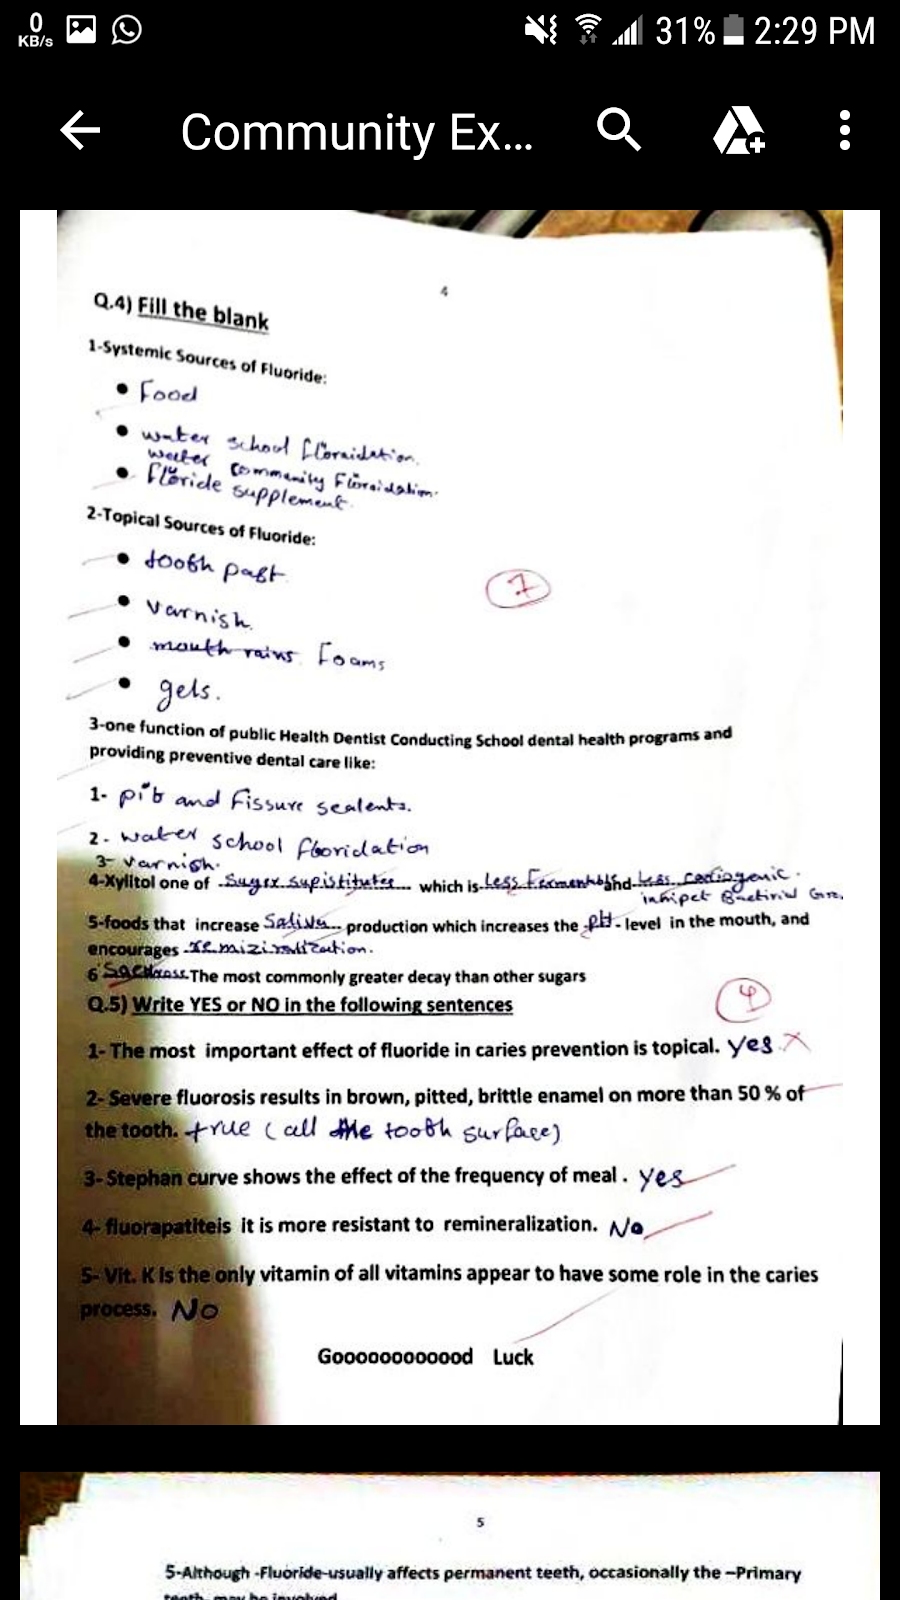 0
KB/s
31% 2:29 PM
Community Ex...
4
Q.4) Fill the blank
1-Systemic Sources of Fluoride:
• Food
• water school floraidation.
water community Floraidation.
• floride supplement.
2-Topical Sources of Fluoride:
• tooth past
• varnish.
• mouth rains. Foams
• gels.
7
3-one function of public Health Dentist Conducting School dental health programs and
providing preventive dental care like:
1- pit and Fissure sealents.
2- water school floridation
3- varnish.
4-Xylitol one of Suger supistitutes which is Less Fermentable and Less cariogenic.
5-foods that increase Saliva production which increases the pH level in the mouth, and
encourages
6 The most commonly greater decay than other sugars
Q.5) Write YES or NO in the following sentences
4
1- The most important effect of fluoride in caries prevention is topical. yes
2- Severe fluorosis results in brown, pitted, brittle enamel on more than 50 % of
the tooth. true (all the tooth surface)
3- Stephan curve shows the effect of the frequency of meal . yes
4- fluorapatiteis it is more resistant to remineralization. No
5- Vit. K is the only vitamin of all vitamins appear to have some role in the caries
process. No
Goooooooooood Luck
5
5-Although -Fluoride-usually affects permanent teeth, occasionally the –Primary
teeth may be involved